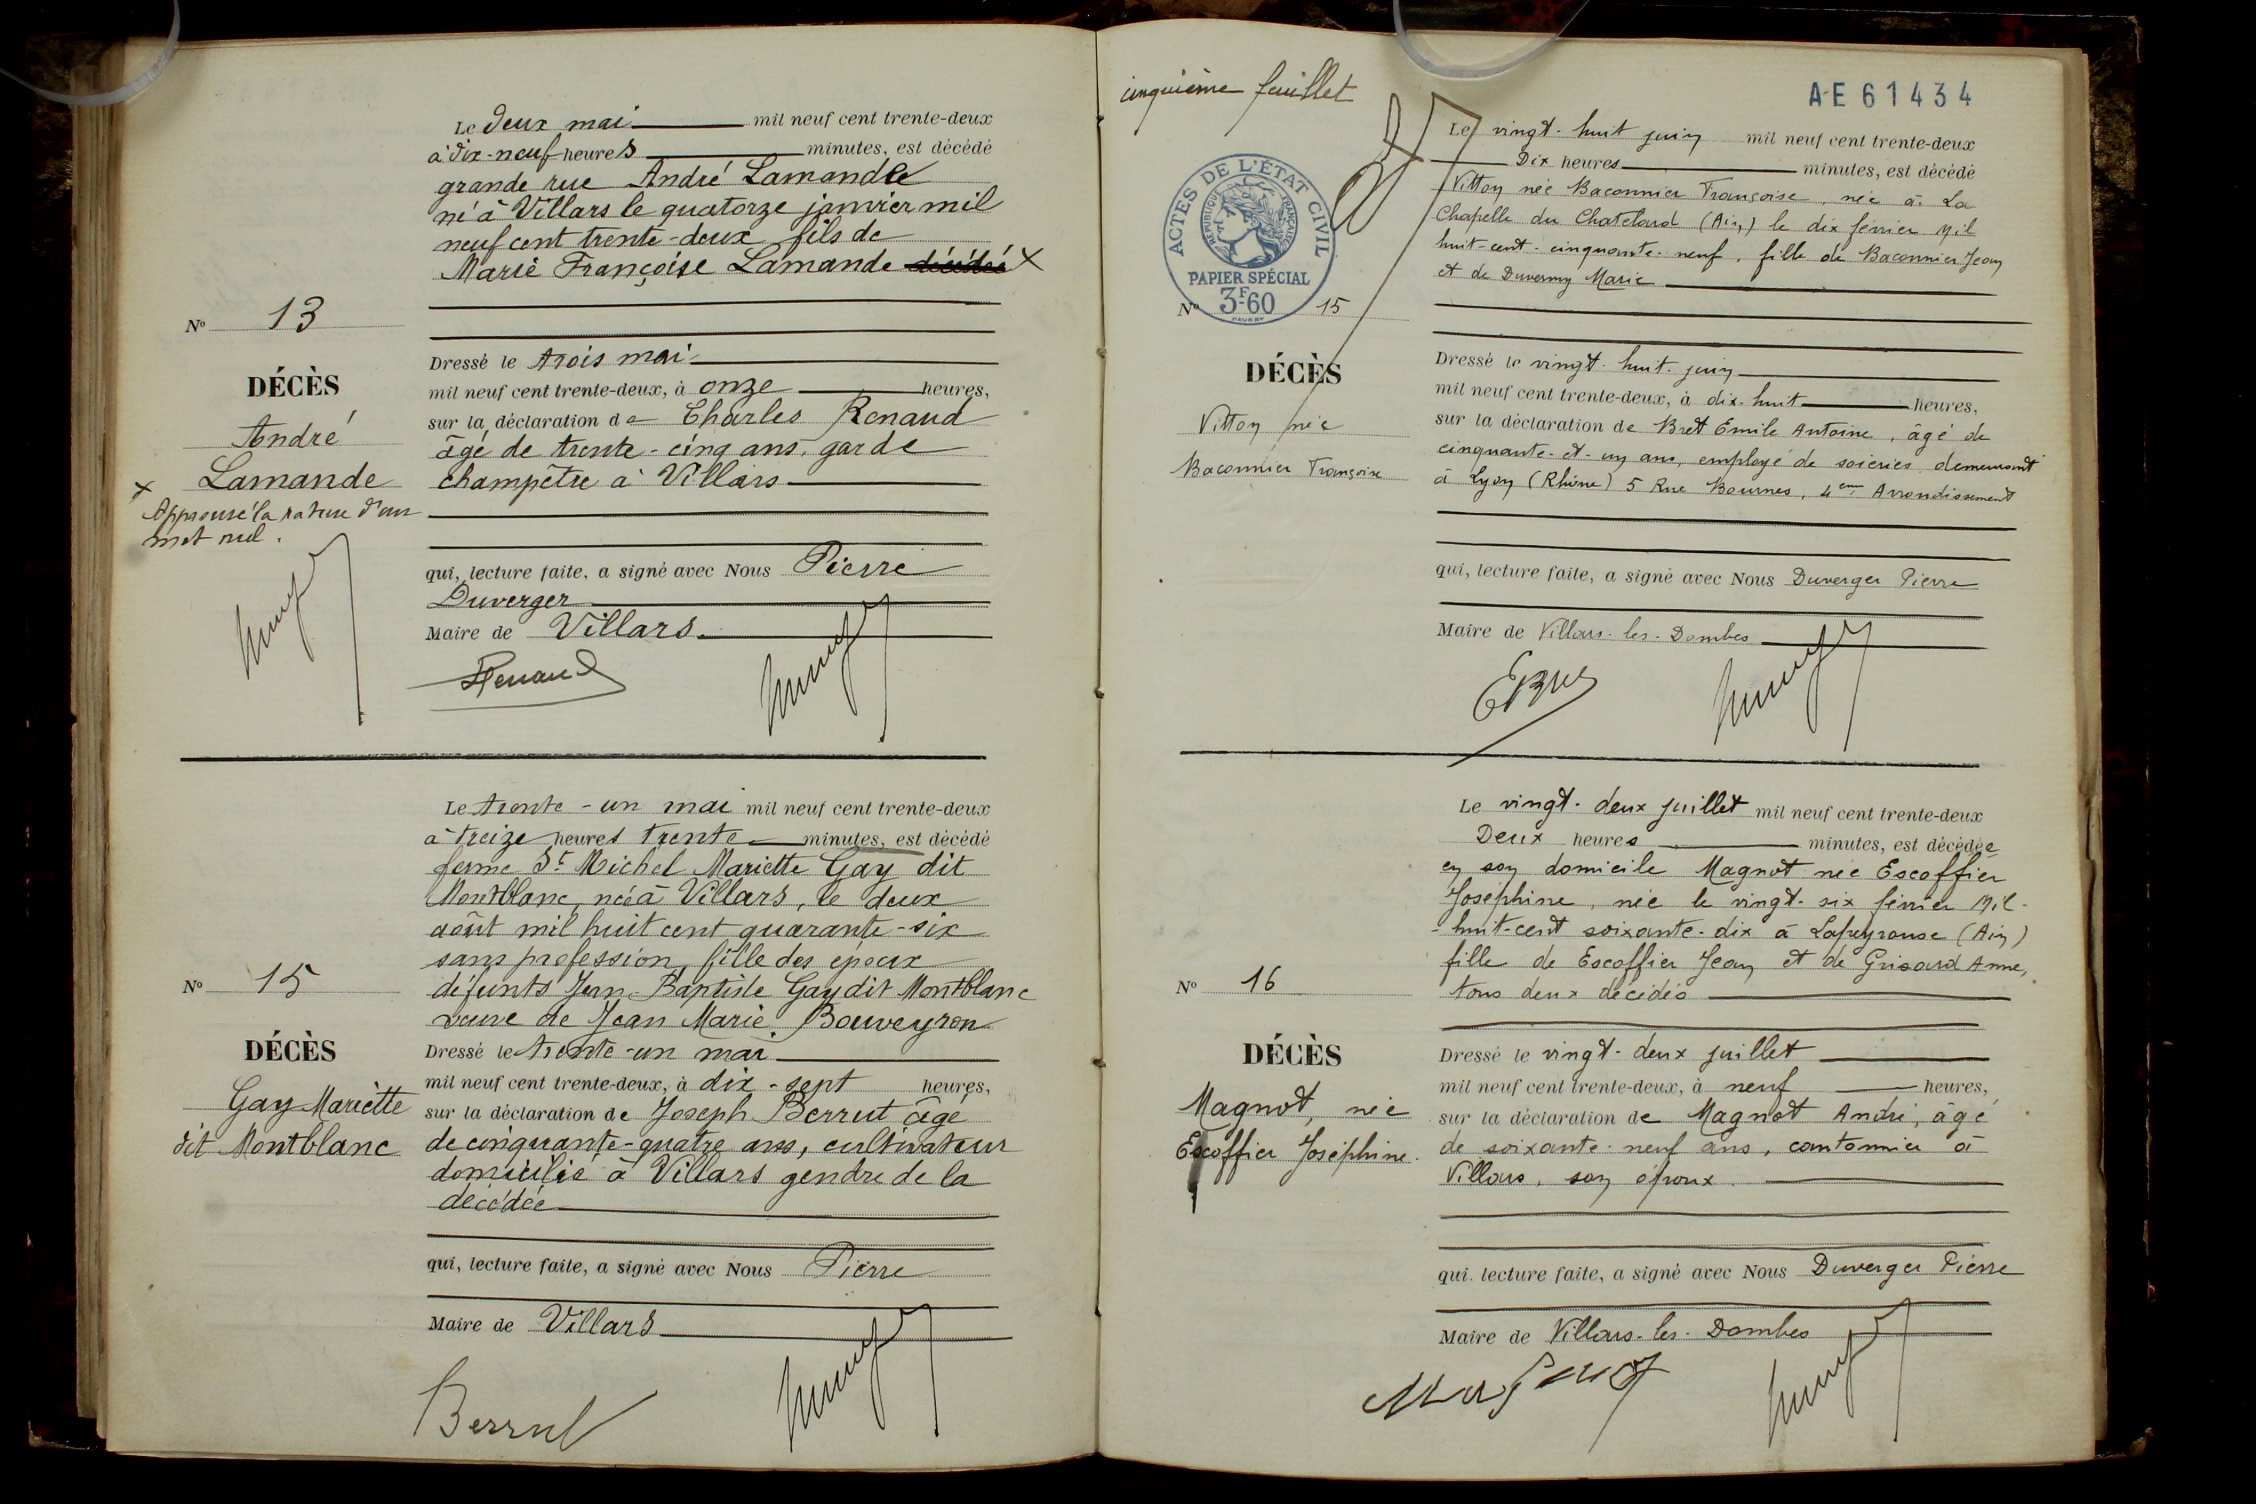 Le deux mai mil neuf cent trente-deux
à dix-neuf heures minutes, est décédé
grande rue André Lamande
né à Villars le quatorze janvier mil
neuf cent trente-deux fils de
Marie Françoise Lamande décédée x
N° 13
DÉCÈS
André
Lamande
x Approuvé la rature d'un
mot nul.
Dressé le trois mai
mil neuf cent trente-deux, à onze heures,
sur la déclaration de Charles Renaud
âgé de trente-cinq ans, garde
champêtre à Villars
qui, lecture faite, a signé avec Nous Pierre
Duverger
Maire de Villars
Renaud
Le trente-un mai mil neuf cent trente-deux
à treize heures trente minutes, est décédé
ferme St Michel Mariette Gay dit
Montblanc, née à Villars, le deux
août mil huit cent quarante-six
sans profession, fille des époux
défunts Jean-Baptiste Gay dit Montblanc
veuve de Jean Marie Bouveyron
N° 15
DÉCÈS
Gay Mariette
dit Montblanc
Dressé le trente-un mai
mil neuf cent trente-deux, à dix-sept heures,
sur la déclaration de Joseph Berrut âgé
de cinquante-quatre ans, cultivateur
domicilié à Villars gendre de la
décédée
qui, lecture faite, a signé avec Nous Pierre
Maire de Villars
Berrut
cinquième feuillet
AE 61434
ACTES DE L'ÉTAT CIVIL
RÉPUBLIQUE FRANÇAISE
PAPIER SPÉCIAL
3F60
Le vingt-huit juin mil neuf cent trente-deux
Dix heures minutes, est décédé
Vitton née Baconnier Françoise, née à La
Chapelle du Chatelard (Ain) le dix février mil
huit-cent-cinquante-neuf, fille de Baconnier Jean
et de Duverny Marie
N° 15
DÉCÈS
Vitton née
Baconnier Françoise
Dressé le vingt-huit-juin
mil neuf cent trente-deux, à dix-huit heures,
sur la déclaration de Bret Emile Antoine, âgé de
cinquante-et-un ans, employé de soieries demeurant
à Lyon (Rhône) 5 Rue Bournes, 4eme Arrondissement
qui, lecture faite, a signé avec Nous Duverger Pierre
Maire de Villars-les-Dombes
EBret
Le vingt-deux juillet mil neuf cent trente-deux
Deux heures minutes, est décédée
en son domicile Magnot née Escoffier
Joséphine, née le vingt-six février mil-
-huit-cent soixante-dix à Lapeyrouse (Ain)
fille de Escoffier Jean et de Grisard Anne,
tous deux décédés
N° 16
DÉCÈS
Magnot, née
Escoffier Joséphine.
Dressé le vingt-deux juillet
mil neuf cent trente-deux, à neuf heures,
sur la déclaration de Magnot André, âgé
de soixante-neuf ans, cantonnier à
Villars, son époux.
qui, lecture faite, a signé avec Nous Duverger Pierre
Maire de Villars-les-Dombes
Magnot